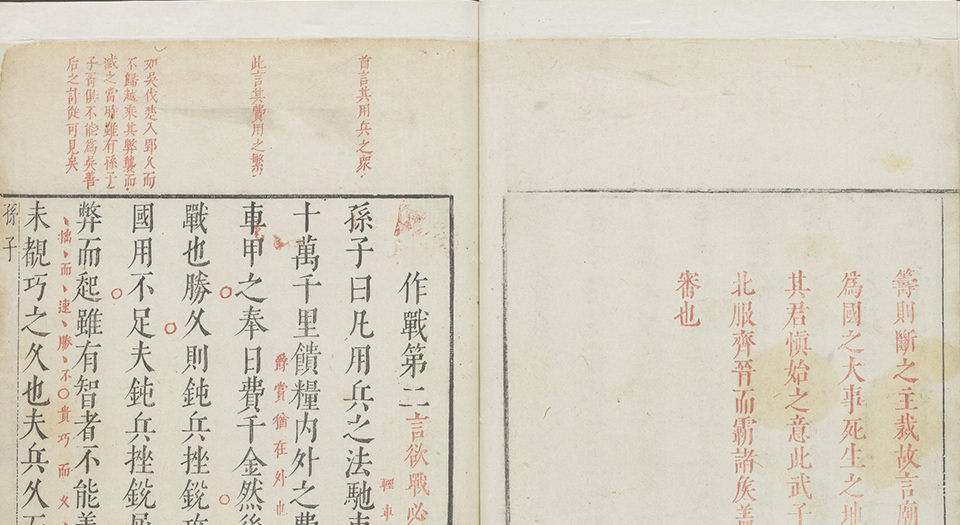 籌則斷之主裁故言廟
為國之大事死生之地
其君愼始之意此武子
北服齊晉而霸諸矦蓋
審也
首言其用兵之衆
此言其費用之繁
如吳伐楚入郢久而
不歸越乘其弊襲而
滅之當時雖有孫子
子胥俱不能爲吳善
后之計從可見矣
作戰第二言欲戰必
孫子曰凡用兵之法馳車
輕車
十萬千里饋糧內外之費
爵賞猶在外也
車甲之奉日費千金然後
戰也勝久則鈍兵挫銳攻
國用不足夫鈍兵挫銳屈
弊而起雖有智者不能善
拙而速勝不貴巧而久
未覩巧之久也夫兵久而
孫子